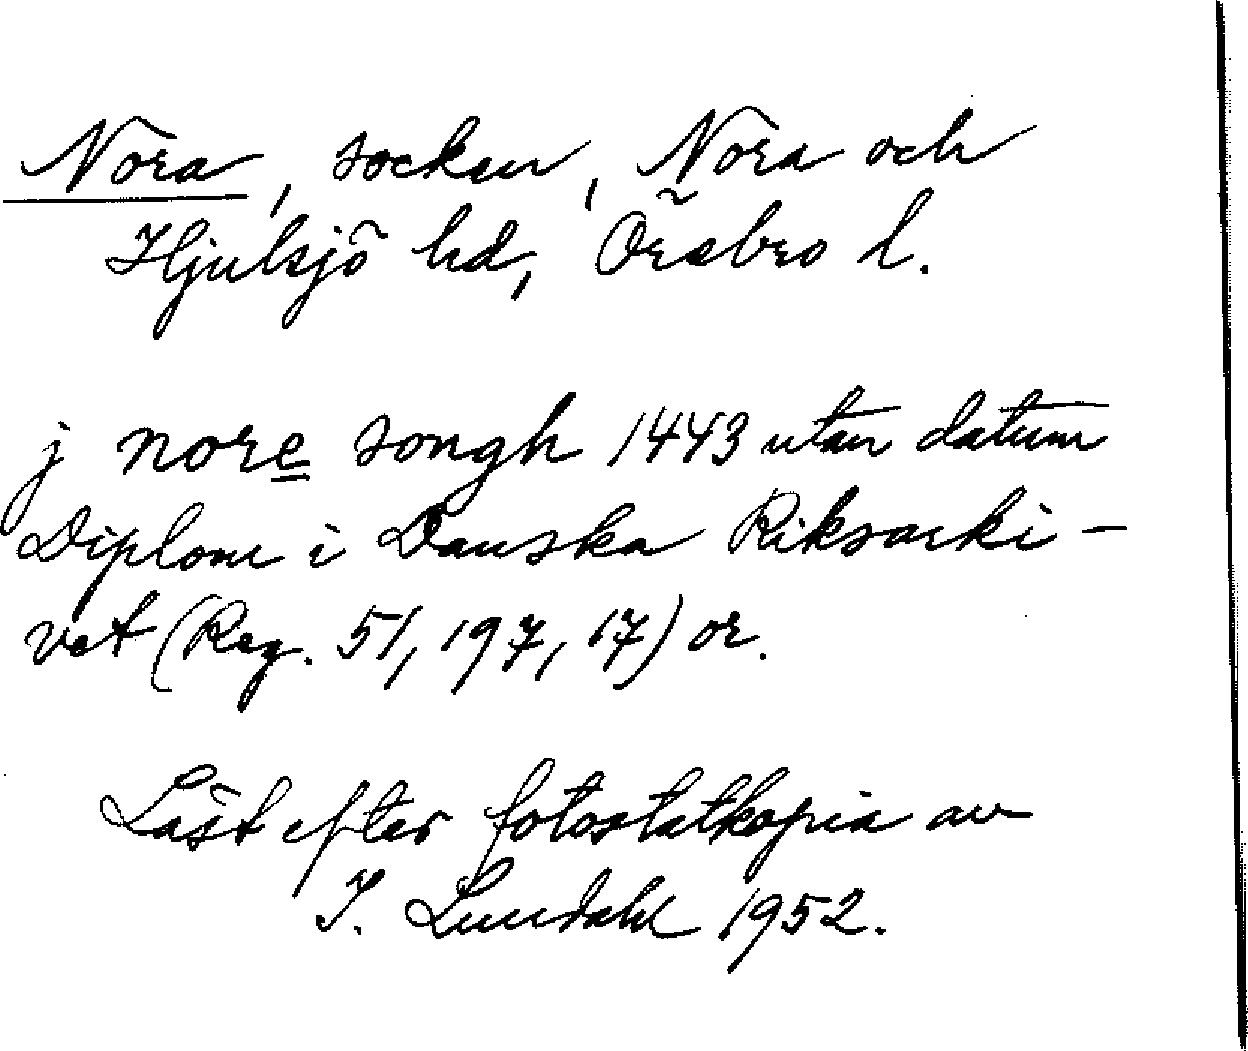 Nora, socken, Nora och
Hjulsjö hd, Örebro l.
j nore songh 1443 utan datum
Diplom i Danska Riksarki-
vet (Reg. 51, 197, 17) or.
Läst efter fotostatkopia av
I. Lundahl 1952.